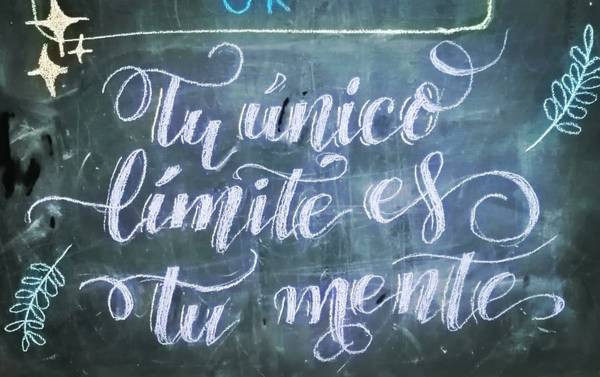 Tu único
límite es
tu mente